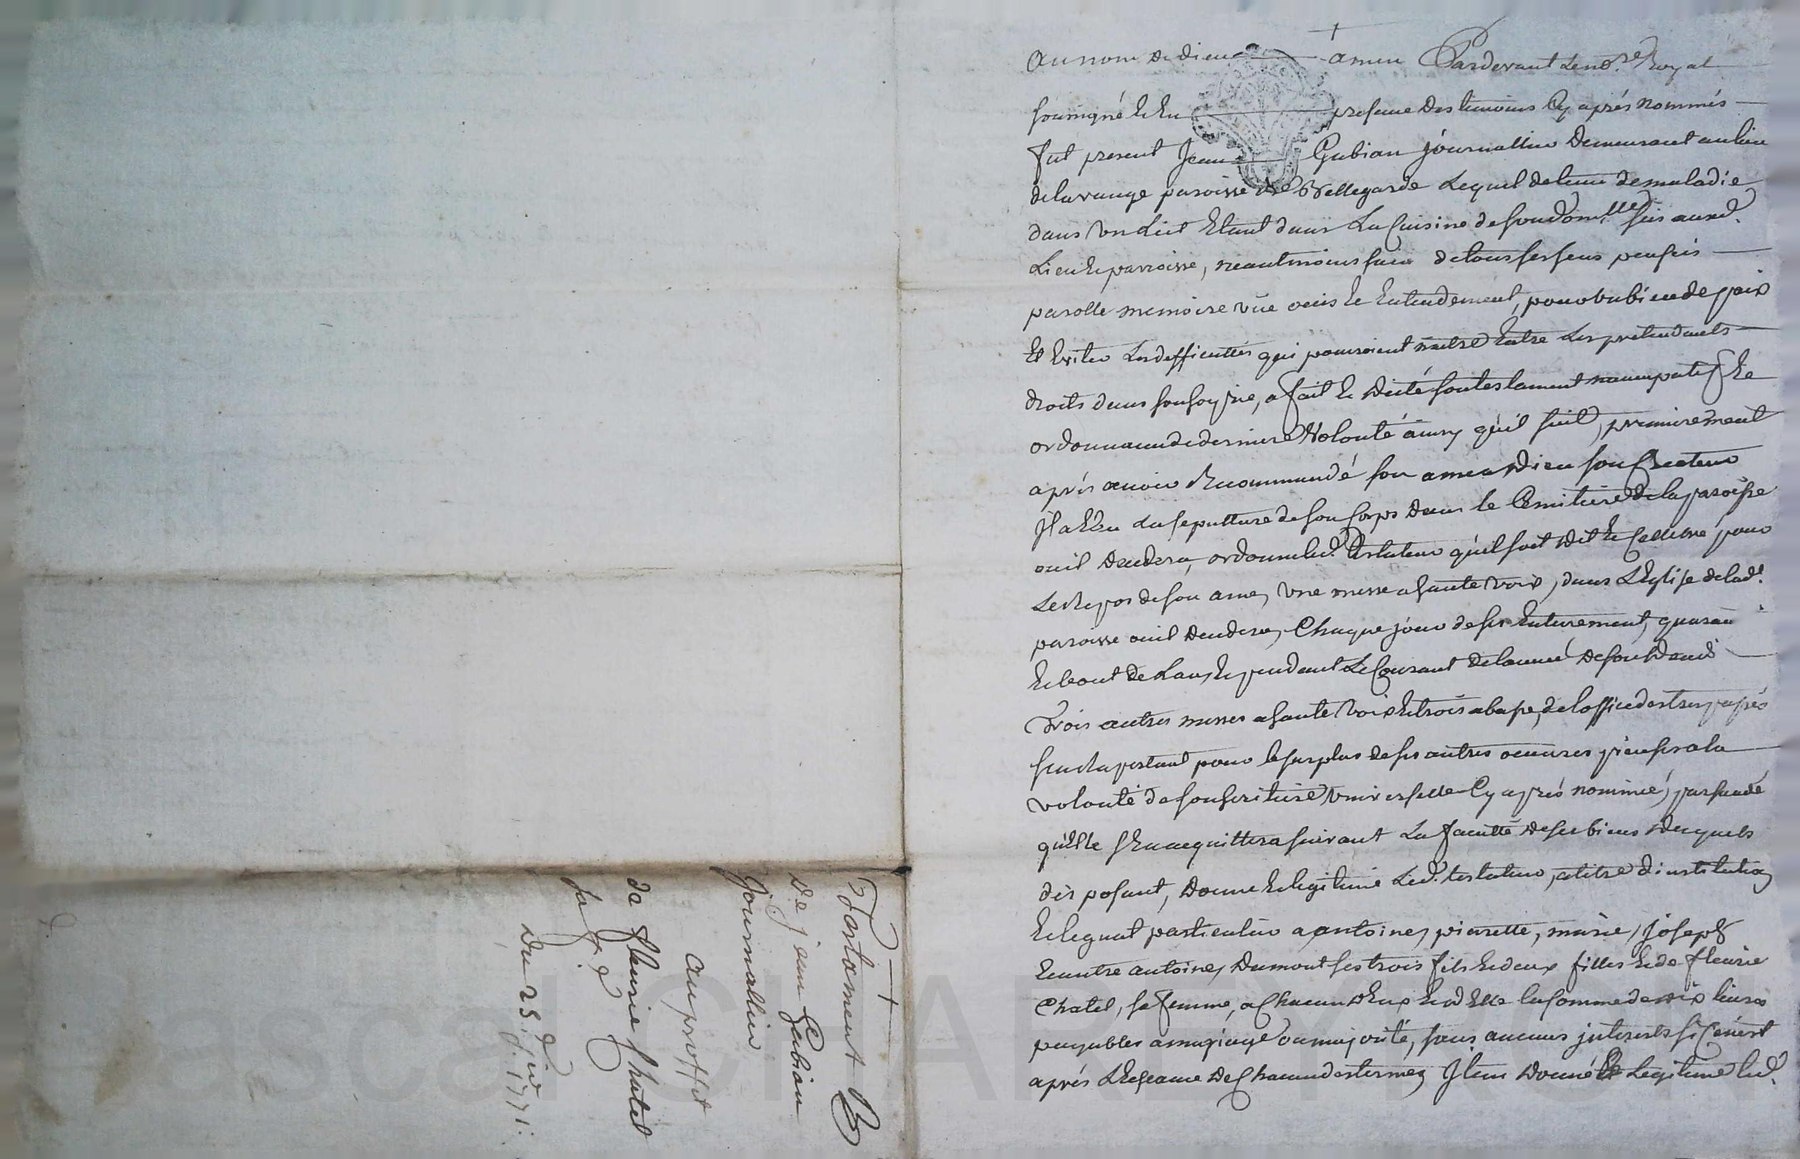 Testament
De jean Gubian
Journallier
au proffit
de fleurie Chatel
sa f.e
Du 25 1771.
au nom de dieu amen Pardevant le no.re Royal
soussigné et en presence des temoins Cy aprés nommés
fut present Jean Gubian journallier Demeurant au lieu
de lavange paroisse de Bellegarde Lequel detenu de maladie
dans un Lit Etant dans La Cuisine de son domille sis aud.
Lieu et parroisse, neantmoins sain de tous ses sens pensées
parolle memoire vüe ouis et Entendement, pour bien de paix
Et Eviter Les difficultés qui pourroient naitre Entre Les pretendants
droits dans son hoyrie, a fait et dicté son testament nuncupatif et
ordonnance de derniere Volonté ainsy qu'il suit, premierement
aprés avoir Recommandé son ame a Dieu son Createur
Il a Elu La sepulture de son Corps dans le Cemitiere de la paroisse
ou il Decedera, ordonne led. testateur qu'il soit dit et Cellebré pour
Le Repos de son ame, une messe a haute voix, dans L'Eglise de lad.
paroisse ou il decedera, Chaque jour de ses Enterrement, quaran
et bout de L'an, et pendant Le Courant de l'année de son Deces
Trois autres messes a haute voix et trois a basse, de l'office des trepassés
se raportant pour le surplus de ses autres oeuvres pieuses a la
volonté de son heritiere universelle Cy aprés nommée, persuadé
qu'Elle s'En acquittera suivant La faculté de ses biens desquels
disposant, Donne et legitime Led. testateur, a titre d'institution
et legat particulier a antoine, pierrette, marie, joseph
et autre antoine, Dumont ses trois fils et deux filles et de fleurie
Chatel, sa femme, a Chacun d'Eux et d'Elle la somme de dix livres
payables a mariage ou majorité, sans aucuns interests si Ce n'est
aprés L'Echeance de Chacun des termes Item Donne et Legitime led.